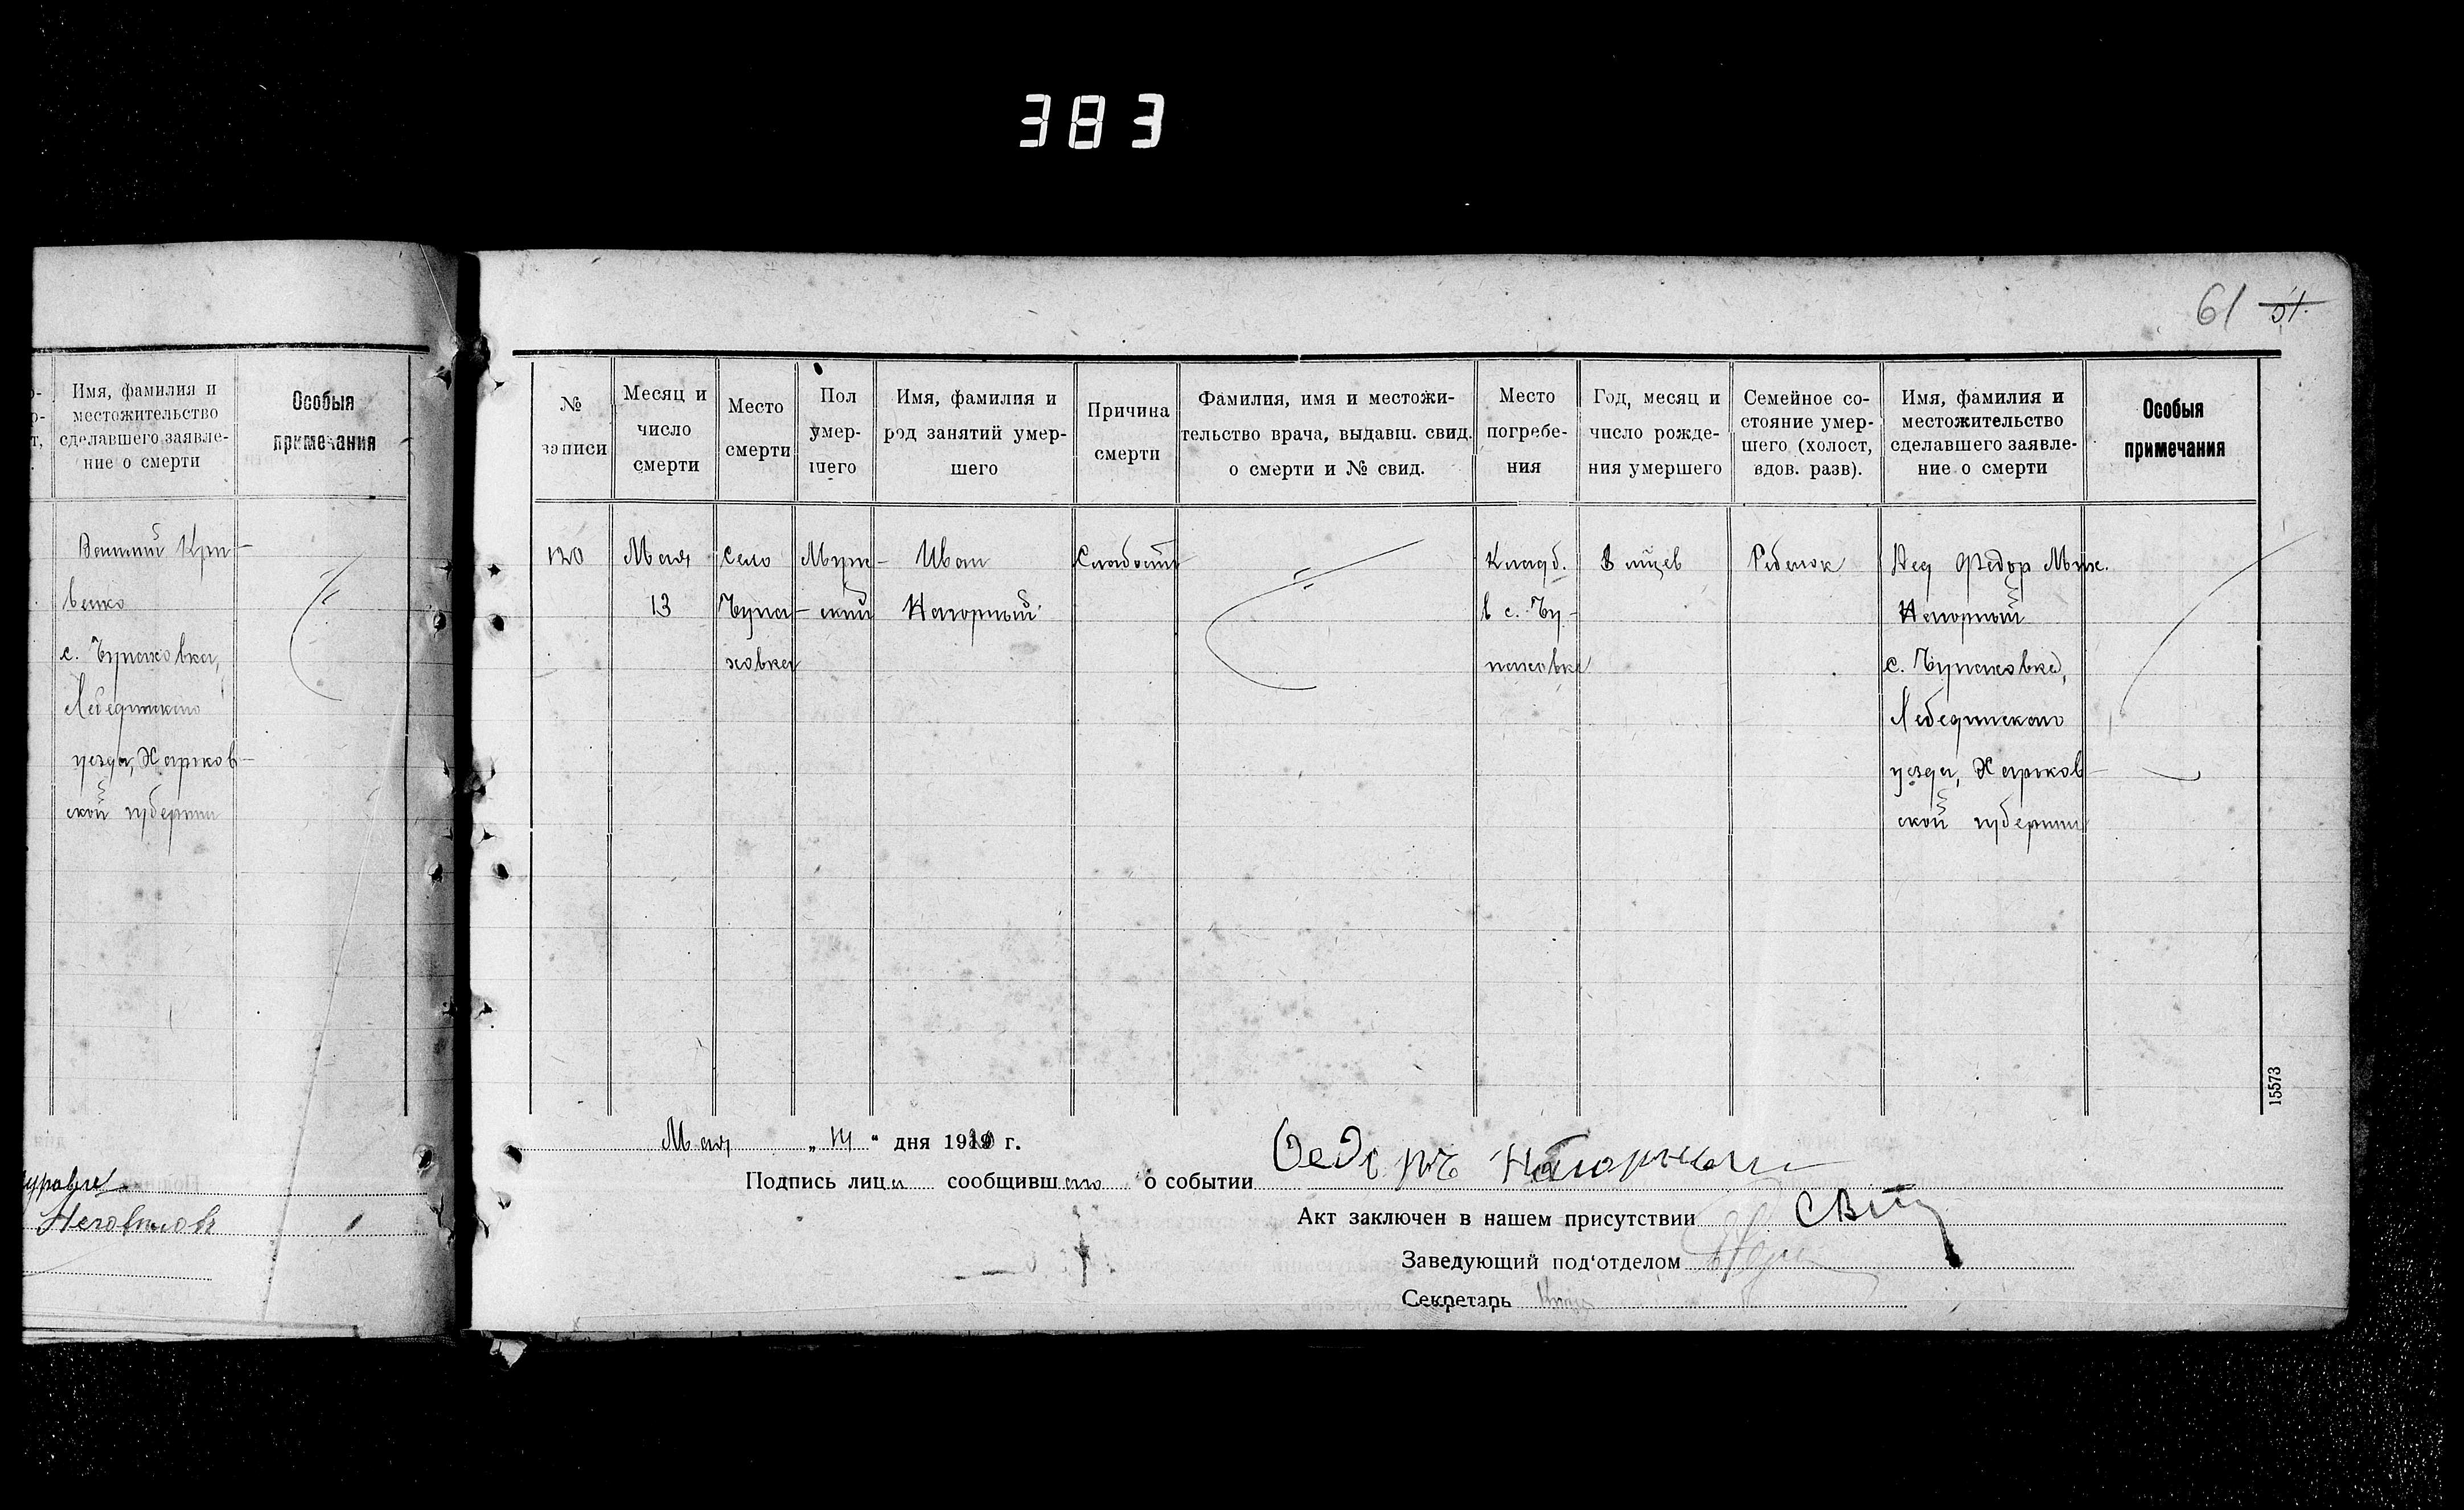 383
61 51.
Имя, фамилия и
местожительство
сделавшего заявле-
ние о смерти
Особыя
примечания
Кри-
венко
с. Чупаховка,
Лебединского
уезда, Харьков-
ской губернии
Неговилов
№
записи
Месяц и
число
смерти
Место
смерти
Пол
умер-
шего
Имя, фамилия и
род занятий умер-
шего
Причина
смерти
Фамилия, имя и местожи-
тельство врача, выдавш. свид.
о смерти и № свид.
Место
погребе-
ния
Год, месяц и
число рожде-
ния умершего
Семейное со-
стояние умер-
шего (холост,
вдов. разв).
Имя, фамилия и
местожительство
сделавшего заявле-
ние о смерти
Особыя
примечания
120
Мая
13
Село
Чупа-
ховка
Муж-
ский
Иван
Нагорный
Слабость
Кладб.
в с. Чу-
паховке
Ребенок
Дед Федор Мих.
Нагорный
с. Чупаховка,
Лебединского
уезда, Харьков-
ской губернии
15573
Мая „ 14 “ дня 1920 г.
Подпись лица сообщившего о событии Федоръ Нагорный
Акт заключен в нашем присутствии
Заведующий под‘отделом
Секретарь